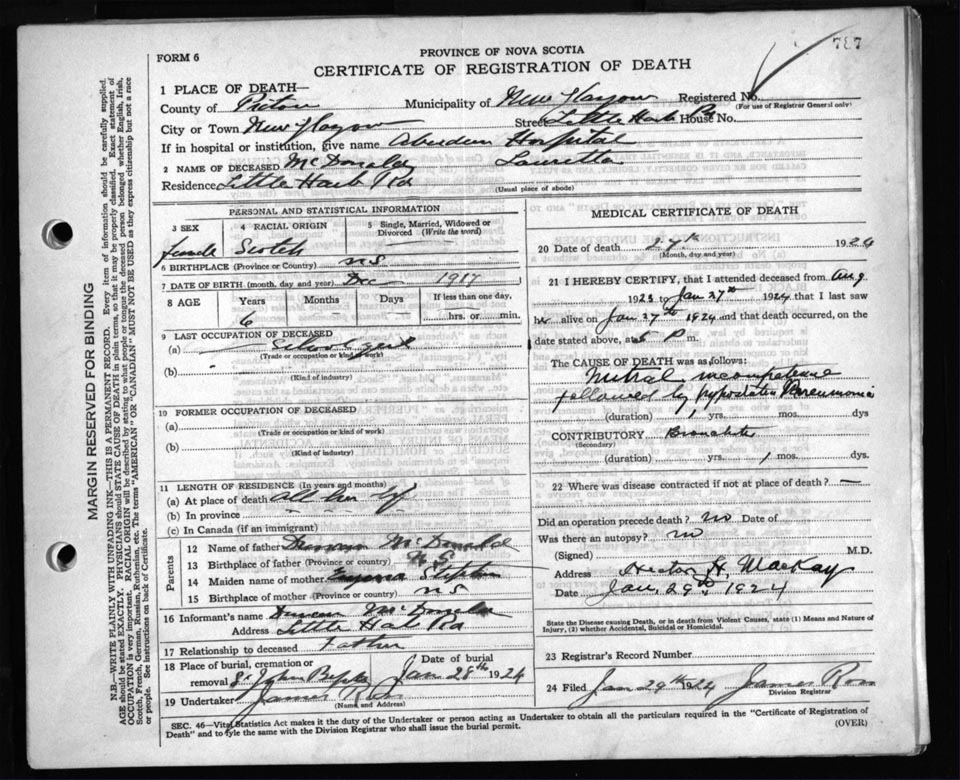 787
FORM 6
PROVINCE OF NOVA SCOTIA
CERTIFICATE OF REGISTRATION OF DEATH
1 PLACE OF DEATH—
County of Pictou Municipality of New Glasgow Registered No.
(For use of Registrar General only)
City or Town New Glasgow Street Little Harb Rd House No.
If in hospital or institution, give name Aberdeen Hospital
2 NAME OF DECEASED McDonald Lauretta
Residence Little Harb Rd (Usual place of abode)
PERSONAL AND STATISTICAL INFORMATION
3 SEX 4 RACIAL ORIGIN 5 Single, Married, Widowed or Divorced (Write the word)
female Scotch
6 BIRTHPLACE (Province or Country) N S
7 DATE OF BIRTH (month, day and year) Dec 1917
8 AGE Years Months Days If less than one day,
6 hrs. or min.
9 LAST OCCUPATION OF DECEASED
(a) School girl
(Trade or occupation or kind of work)
(b)
(Kind of industry)
10 FORMER OCCUPATION OF DECEASED
(a)
(Trade or occupation or kind of work)
(b)
(Kind of industry)
11 LENGTH OF RESIDENCE (In years and months)
(a) At place of death All her life
(b) In province
(c) In Canada (if an immigrant)
Parents
12 Name of father Duncan McDonald
13 Birthplace of father (Province or country) N S
14 Maiden name of mother
15 Birthplace of mother (Province or country) N S
16 Informant's name Duncan McDonald
Address Little Harb Rd
17 Relationship to deceased Father
18 Place of burial, cremation or removal Date of burial
St John Jan 28th 1924
19 Undertaker James Ross
(Name and Address)
MEDICAL CERTIFICATE OF DEATH
20 Date of death 27th 1924
(Month, day and year)
21 I HEREBY CERTIFY, that I attended deceased from Aug.
1923 Jan 27th 1924 that I last saw
her alive on Jan 27th 1924 and that death occurred, on the
date stated above, at 5 P m.
The CAUSE OF DEATH was as follows:
Mitral incompetence
followed by hypostatic Pneumonia
(duration) 1 yrs. mos. dys
CONTRIBUTORY Bronchitis
(Secondary)
(duration) yrs. 1 mos. dys.
22 Where was disease contracted if not at place of death? —
Did an operation precede death? no Date of
Was there an autopsy? no
(Signed) M.D.
Address Hector H. MacKay
Date Jan. 29th, 1924
State the Disease causing Death, or in death from Violent Causes, state (1) Means and Nature of Injury, (2) whether Accidental, Suicidal or Homicidal.
23 Registrar's Record Number
24 Filed Jan 29th 1924 James Ross
Division Registrar
SEC. 46—Vital Statistics Act makes it the duty of the Undertaker or person acting as Undertaker to obtain all the particulars required in the "Certificate of Registration of
Death" and to file the same with the Division Registrar who shall issue the burial permit. (OVER)
MARGIN RESERVED FOR BINDING
N.B.—WRITE PLAINLY WITH UNFADING INK—THIS IS A PERMANENT RECORD. Every item of information should be carefully supplied.
AGE should be stated EXACTLY. PHYSICIANS should STATE CAUSE OF DEATH in plain terms, so that it may be properly classified. Exact statement of
OCCUPATION is very important. RACIAL ORIGIN will be described by stating to what people or tongue the deceased person belonged whether English, Irish,
Scotch, French, German, Russian, Ruthenian, etc. The terms "AMERICAN" OR "CANADIAN" MUST NOT BE USED as they express citizenship but not a race
or people. See instructions on back of Certificate.